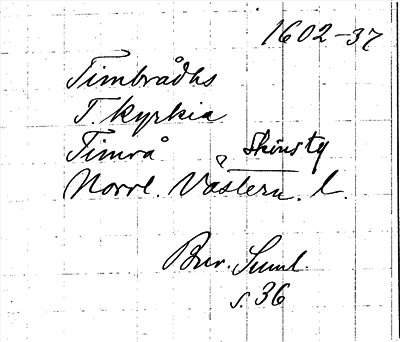 1602-37
Timbrådhs
T. kyrkia
Timrå Skönsty
Norrl. Västern. l.
Bur. Suml
s. 36